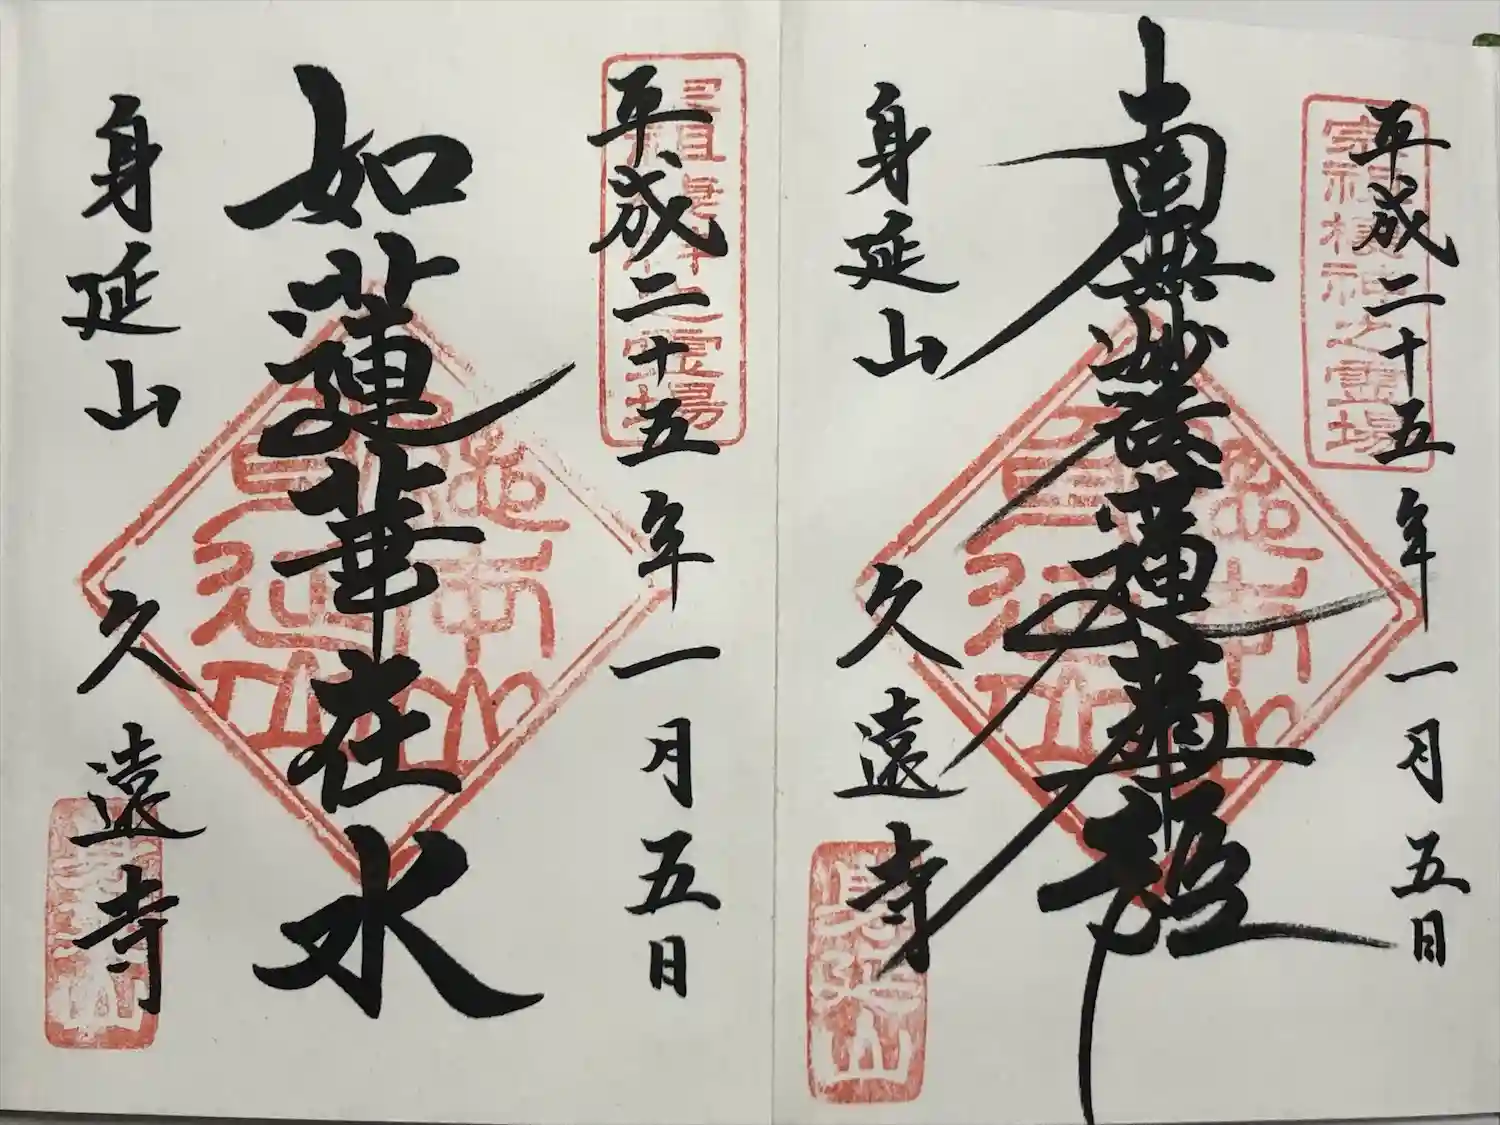 平成二十五年一月五日
宗祖棲神之霊場
南無妙法蓮華経
身延山
久遠寺
身延山
平成二十五年一月五日
宗祖棲神之霊場
如蓮華在水
身延山
久遠寺
身延山